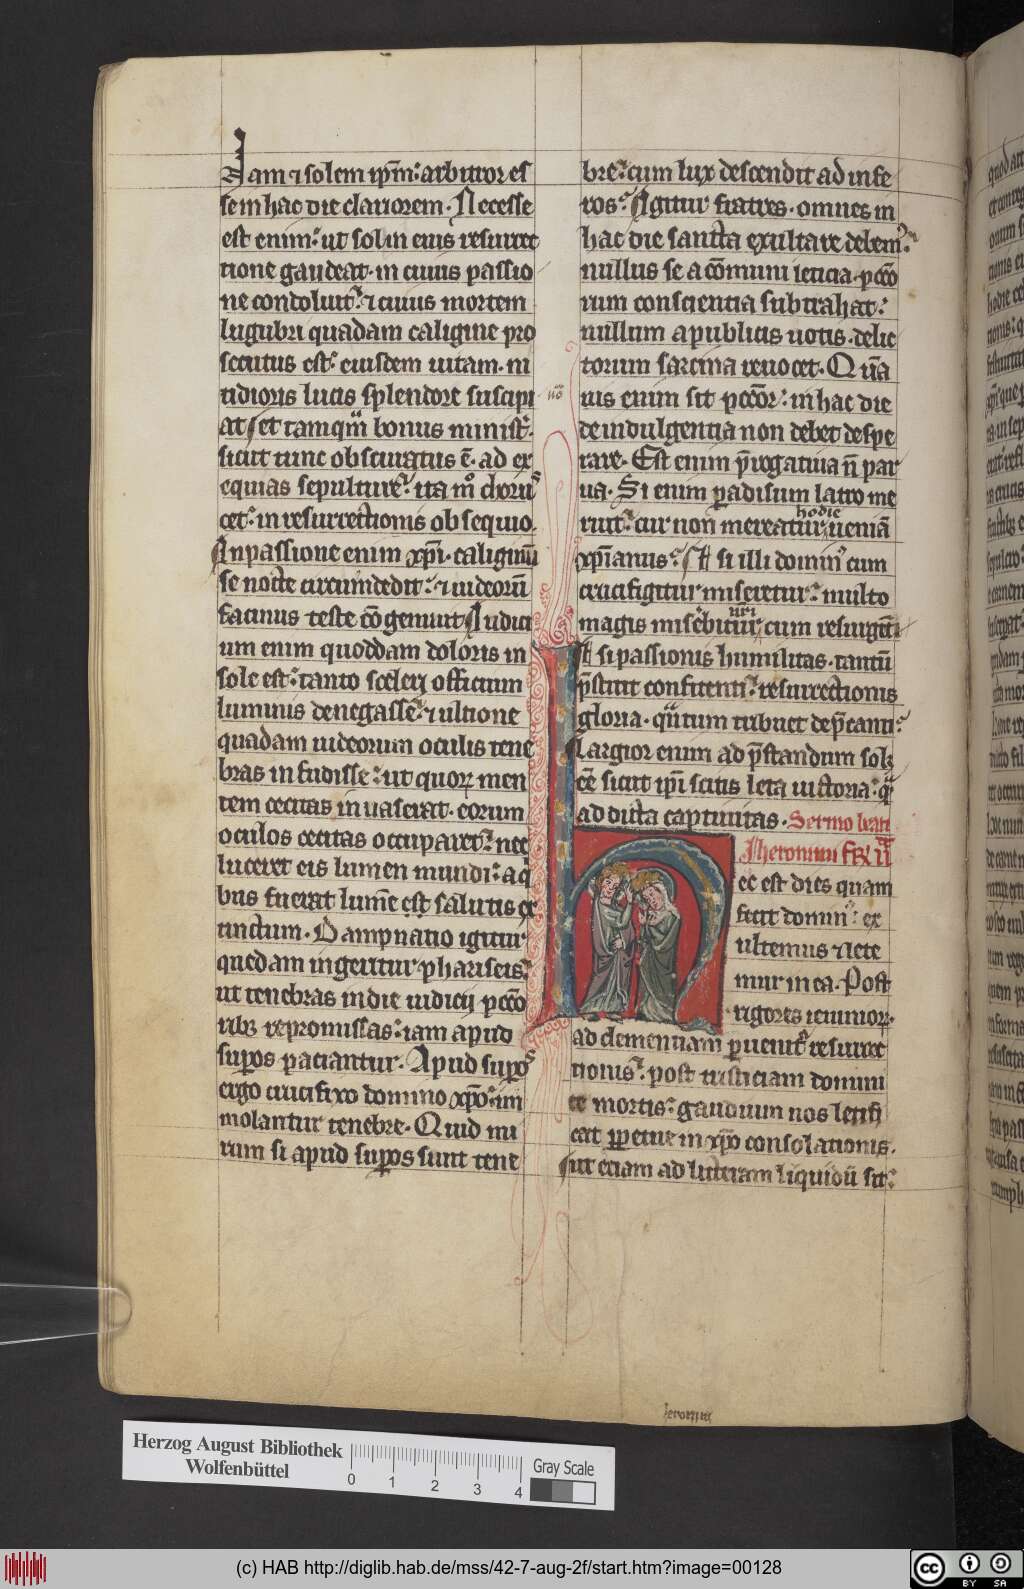 Iam ⁊ solem ip̄m: arbitror es
se in hac die clariorem. Necesse
est enim: ut sol in eius resurrec
tione gaudeat. in cuius passio
ne condoluit: ⁊ cuius mortem
lugubri quadam caligine pro
secutus est: eiusdem uitam. ni
tidioris lucis splendore suscipi
at et tamqm̄ bonus minist̄.
sicut tunc obscuratus ē. ad ex
equias sepulture: ita m̊ choru
cet: in resurrectionis obsequio.
In passione enim xp̄i. caliginū
se nocte circumdedit: ⁊ iudeorū
facinus teste cō gemuit Iudici
um enim quoddam doloris in
sole est: tanto sceleri officium
luminis denegasse: ⁊ ultione
quadam iudeorum oculis tene
bras infudisse: ut quoꝝ men
tem cecitas inuaserat. eorum
oculos cecitas occuparet: nec
luceret eis lumen mundi: a q̇
bus fuerat lumē est salutis ex
tinctum. Dampnatio igitur
quedam ingeritur phariseis:
ut tenebras in die iudicij pccō
ribꝫ repromissas: iam apud
suꝑos paciantur. Apud suꝑos
ergo crucifixo domino xp̄o: im
molantur tenebre. Quid mi
rum si apud suꝑos sunt tene
nō
bre: cum lux descendit ad infe
ros: Igitur fratres. omnes in
hac die sancta exultare debem᷒.
nullus se a cōmuni leticia. pccō
rum conscientia subtrahat:
nullum a publicis uotis. delic
torum sarcina reuocet. Quā
uis enim sit pccōr: in hac die
de indulgentia non debet despe
rare. Est enim p̄rogatiua ñ par
ua. Si enim ꝑadisum latro me
ruit: cur non mereatur hodie ueniā
xp̄ianus: Et si illi domin᷒ cum
crucifigitur miseretur: multo
magis miserebitur nr̄i cum resurgit
Et si passionis humilitas. tantū
p̄stitit confitenti: resurrectionis
gloria. qn̄tum tribuet dep̄canti:
Largior enim ad p̄standum sol
ēē sicut ip̄i scitis leta uictoria: q̄
addicta captiuitas. Sermo beati
Jheronimi
Hec est dies quam
fecit domin᷒: ex
ultemus ⁊ lete
mur in ea. Post
rigores ieiunioꝝ.
ad clementiam ꝑuenit᷑ resurrec
tionis: post tristiciam domini
ce mortis: gaudium nos letifi
cat ꝑpetue in xp̄o consolationis.
Ut eciam ad litteram liquidū sit:
Jeronimi
Herzog August Bibliothek
Wolfenbüttel
0 1 2 3 4
Gray Scale
(c) HAB http://diglib.hab.de/mss/42-7-aug-2f/start.htm?image=00128
cc BY SA